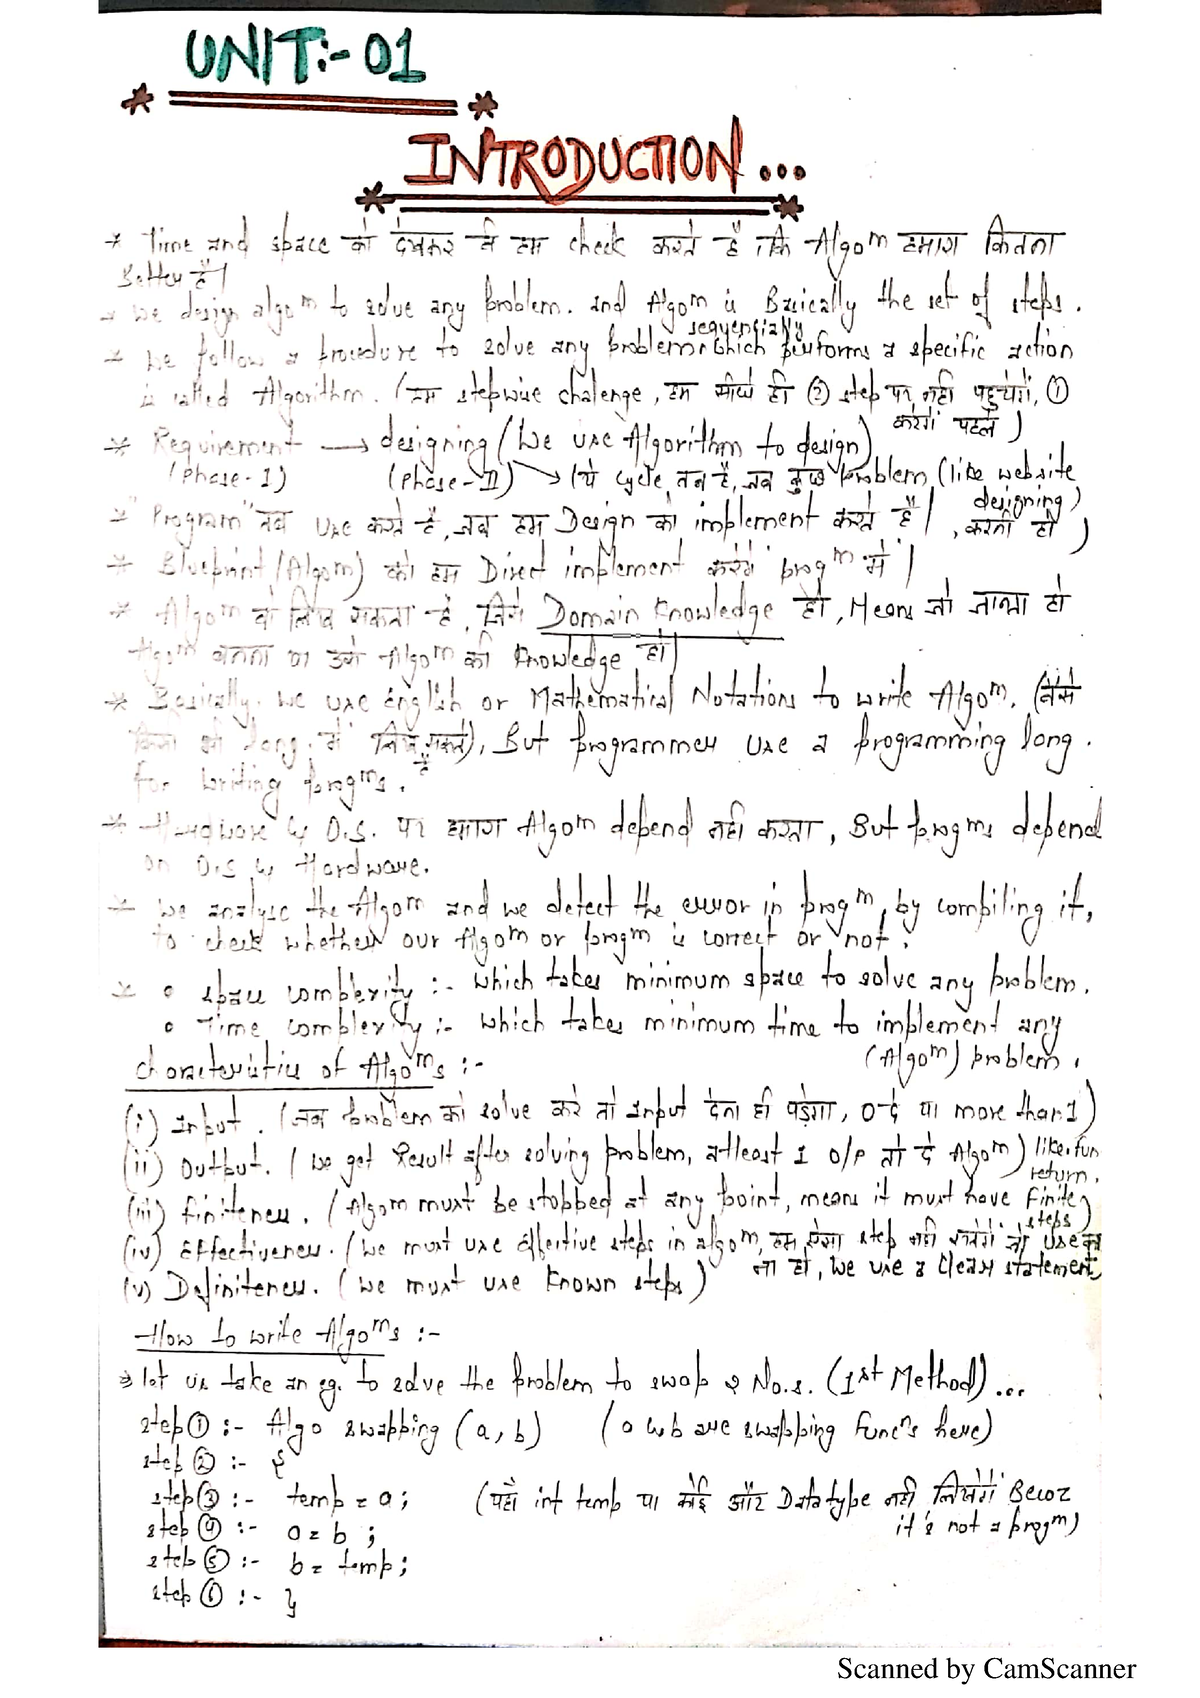 UNIT:- 01
INTRODUCTION...
* Time and space को देखकर ही हम check करते है कि Algoᵐ हमारा कितना
Better है।
→ We design algoᵐ to solve any problem. and Algoᵐ is Basically the set of steps.
sequencially
* We follow a procedure to solve any problem which performs a specific action
is called Algorithm. ( stepwise chalenge, हम सीधे ही (2) step पर नही पहुचेगें, (1)
करेगें पहले )
* Requirement → designing (We use Algorithm to design)
(Phase-I) (Phase-II) → (ये cycle तब है, जब कुछ Problem (like website
designing)
करनी हो )
* "Program" तब use करते है, जब हम Design को implement करते है।
* Blueprint/(Algoᵐ) को हम Direct implement करेगें progᵐ में।
* Algoᵐ वो लिख सकता है, जिसे Domain Knowledge हो, Means जो जानता हो
Algoᵐ बनाना उसे Algoᵐ की Knowledge हो।
* Basically, we use English or Mathematical Notations to write Algoᵐ. (वैसे
किसी भी lang. में लिख सकते है), But programmer use a programming lang.
for writing progᵐs.
* Hardware & O.S. पर हमारा Algoᵐ depend नही करता, But progᵐs depend
on O.S & Hardware.
* We analyse the Algoᵐ and we detect the error in progᵐ, by compiling it,
to check whether our Algoᵐ or progᵐ is correct or not.
* • space complexity :- which takes minimum space to solve any problem.
• Time complexity :- which takes minimum time to implement any
(Algoᵐ) problem.
Characteristics of Algoᵐs :-
(i) Input. (जब Problem को solve करे तो Input देना ही पड़ेगा, 0 दे या more than 1)
(ii) Output. (We get Result after solving problem, atleast 1 O/P तो दे Algoᵐ) like fun
return.
(iii) Finiteness. (Algoᵐ must be stopped at any point, means it must have Finite
steps)
(iv) Effectiveness. (We must use effective steps in algoᵐ, हम ऐसा step नही जो use का
ना हो, We use a clear statement
(v) Definiteness. (We must use Known steps)
How to write Algoᵐs :-
⇒ let us take an eg. to solve the problem to swap 2 No.s. (1st Method)...
step (1) :- Algo swapping (a, b) (a & b are swapping funcⁿs here)
step (2) :- {
step (3) :- temp = a ; (यहाँ int temp या कोई और Datatype नही लिखेगें Becoz
it's not a progᵐ)
step (4) :- a = b ;
step (5) :- b = temp;
step (6) :- }
Scanned by CamScanner